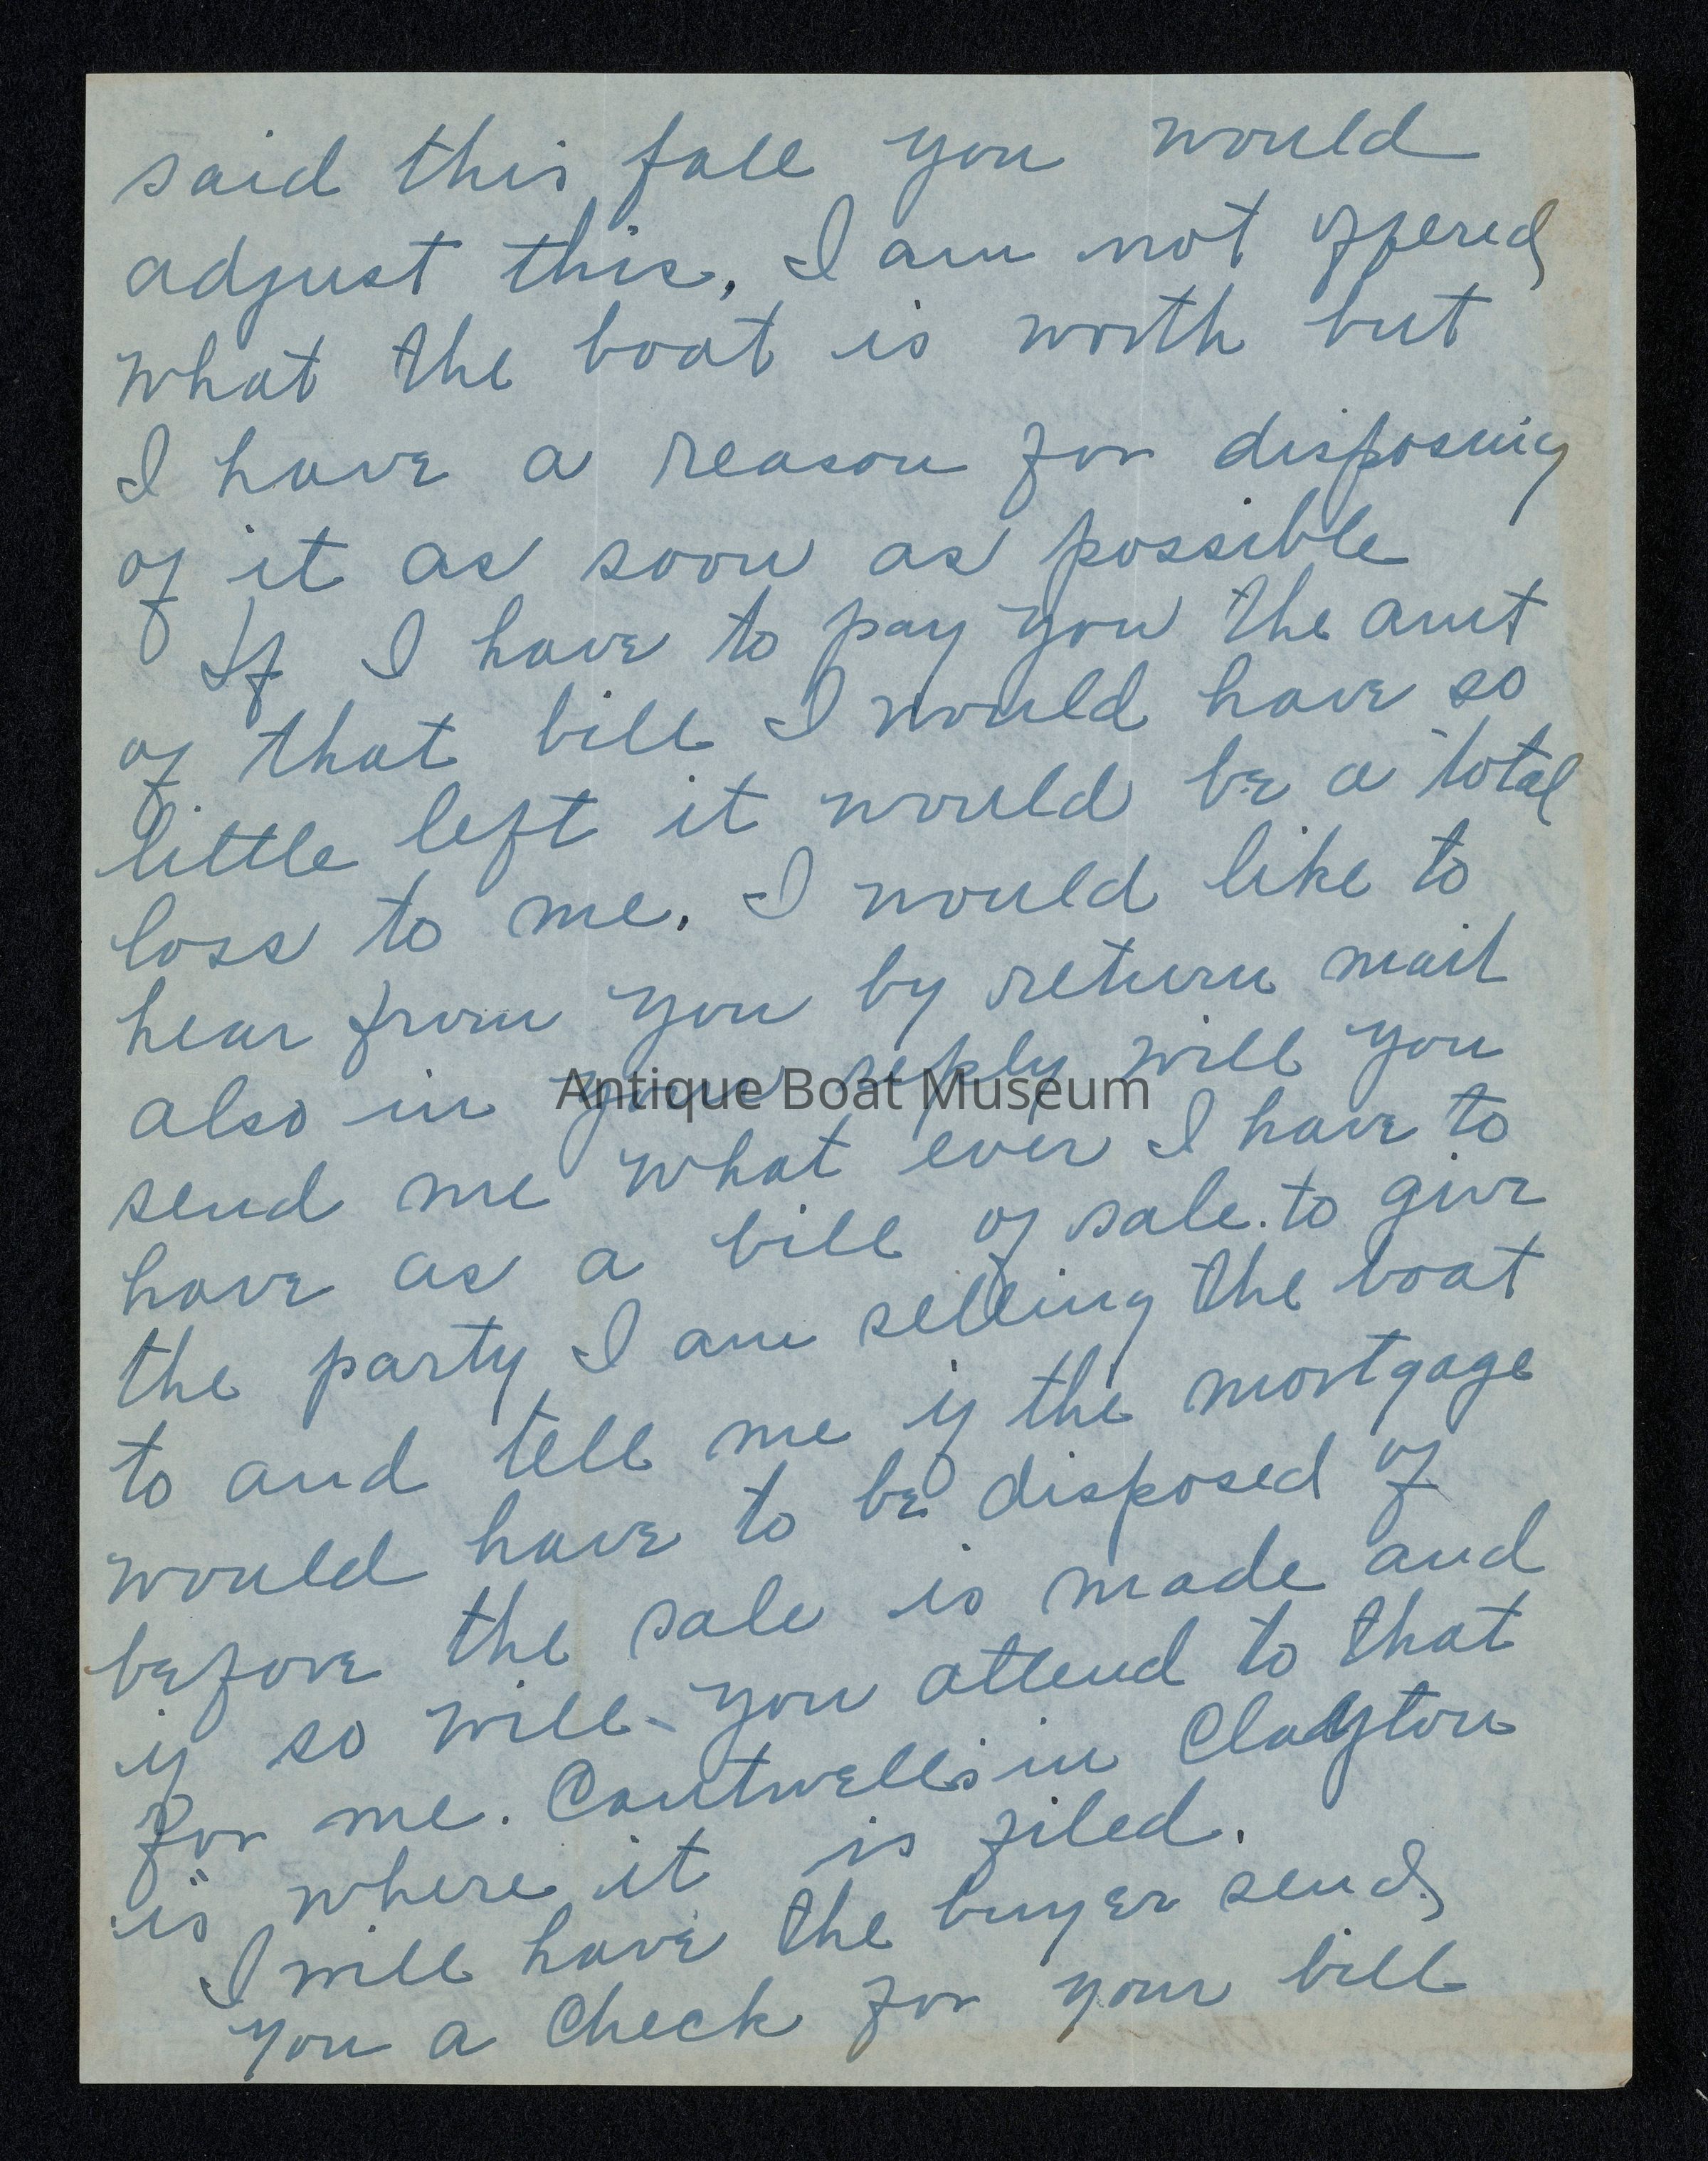 said this fall you would
adjust this. I am not offered
what the boat is worth but
I have a reason for disposing
of it as soon as possible
If I have to pay you the amt
of that bill I would have so
little left it would be a total
loss to me. I would like to
hear from you by return mail
also in your reply will you
Antique Boat Museum
send me what ever I have to
have as a bill of sale. to give
the party I am selling the boat
to and tell me if the mortgage
would have to be disposed of
before the sale is made and
if so will you attend to that
for me. Cantwells in Clayton
is where it is filed.
I will have the buyer send
you a check for your bill